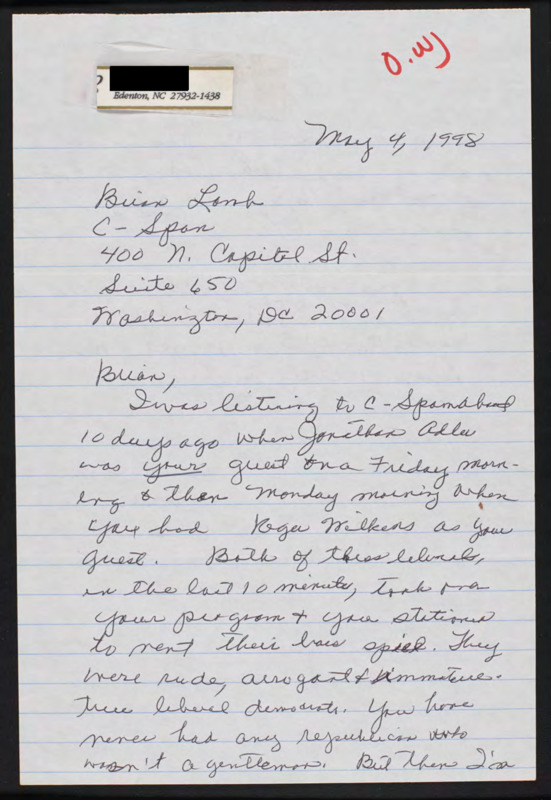 O.W)
Edenton, NC 27932-1438
May 4, 1998
Brian Lamb
C-Span
400 N. Capitol St.
Suite 650
Washington, DC 20001
Brian,
I was listening to C-Span about
10 days ago when Jonathan Alter
was your guest on a Friday morn-
ing & then Monday morning when
you had Roger Wilkens as your
guest. Both of these liberals,
in the last 10 minutes, took over
your program & your stationed
to vent their bais spiel. They
were rude, arrogant & immature.
true liberal democrats. You have
never had any republican who
wasn't a gentleman. But then I'm